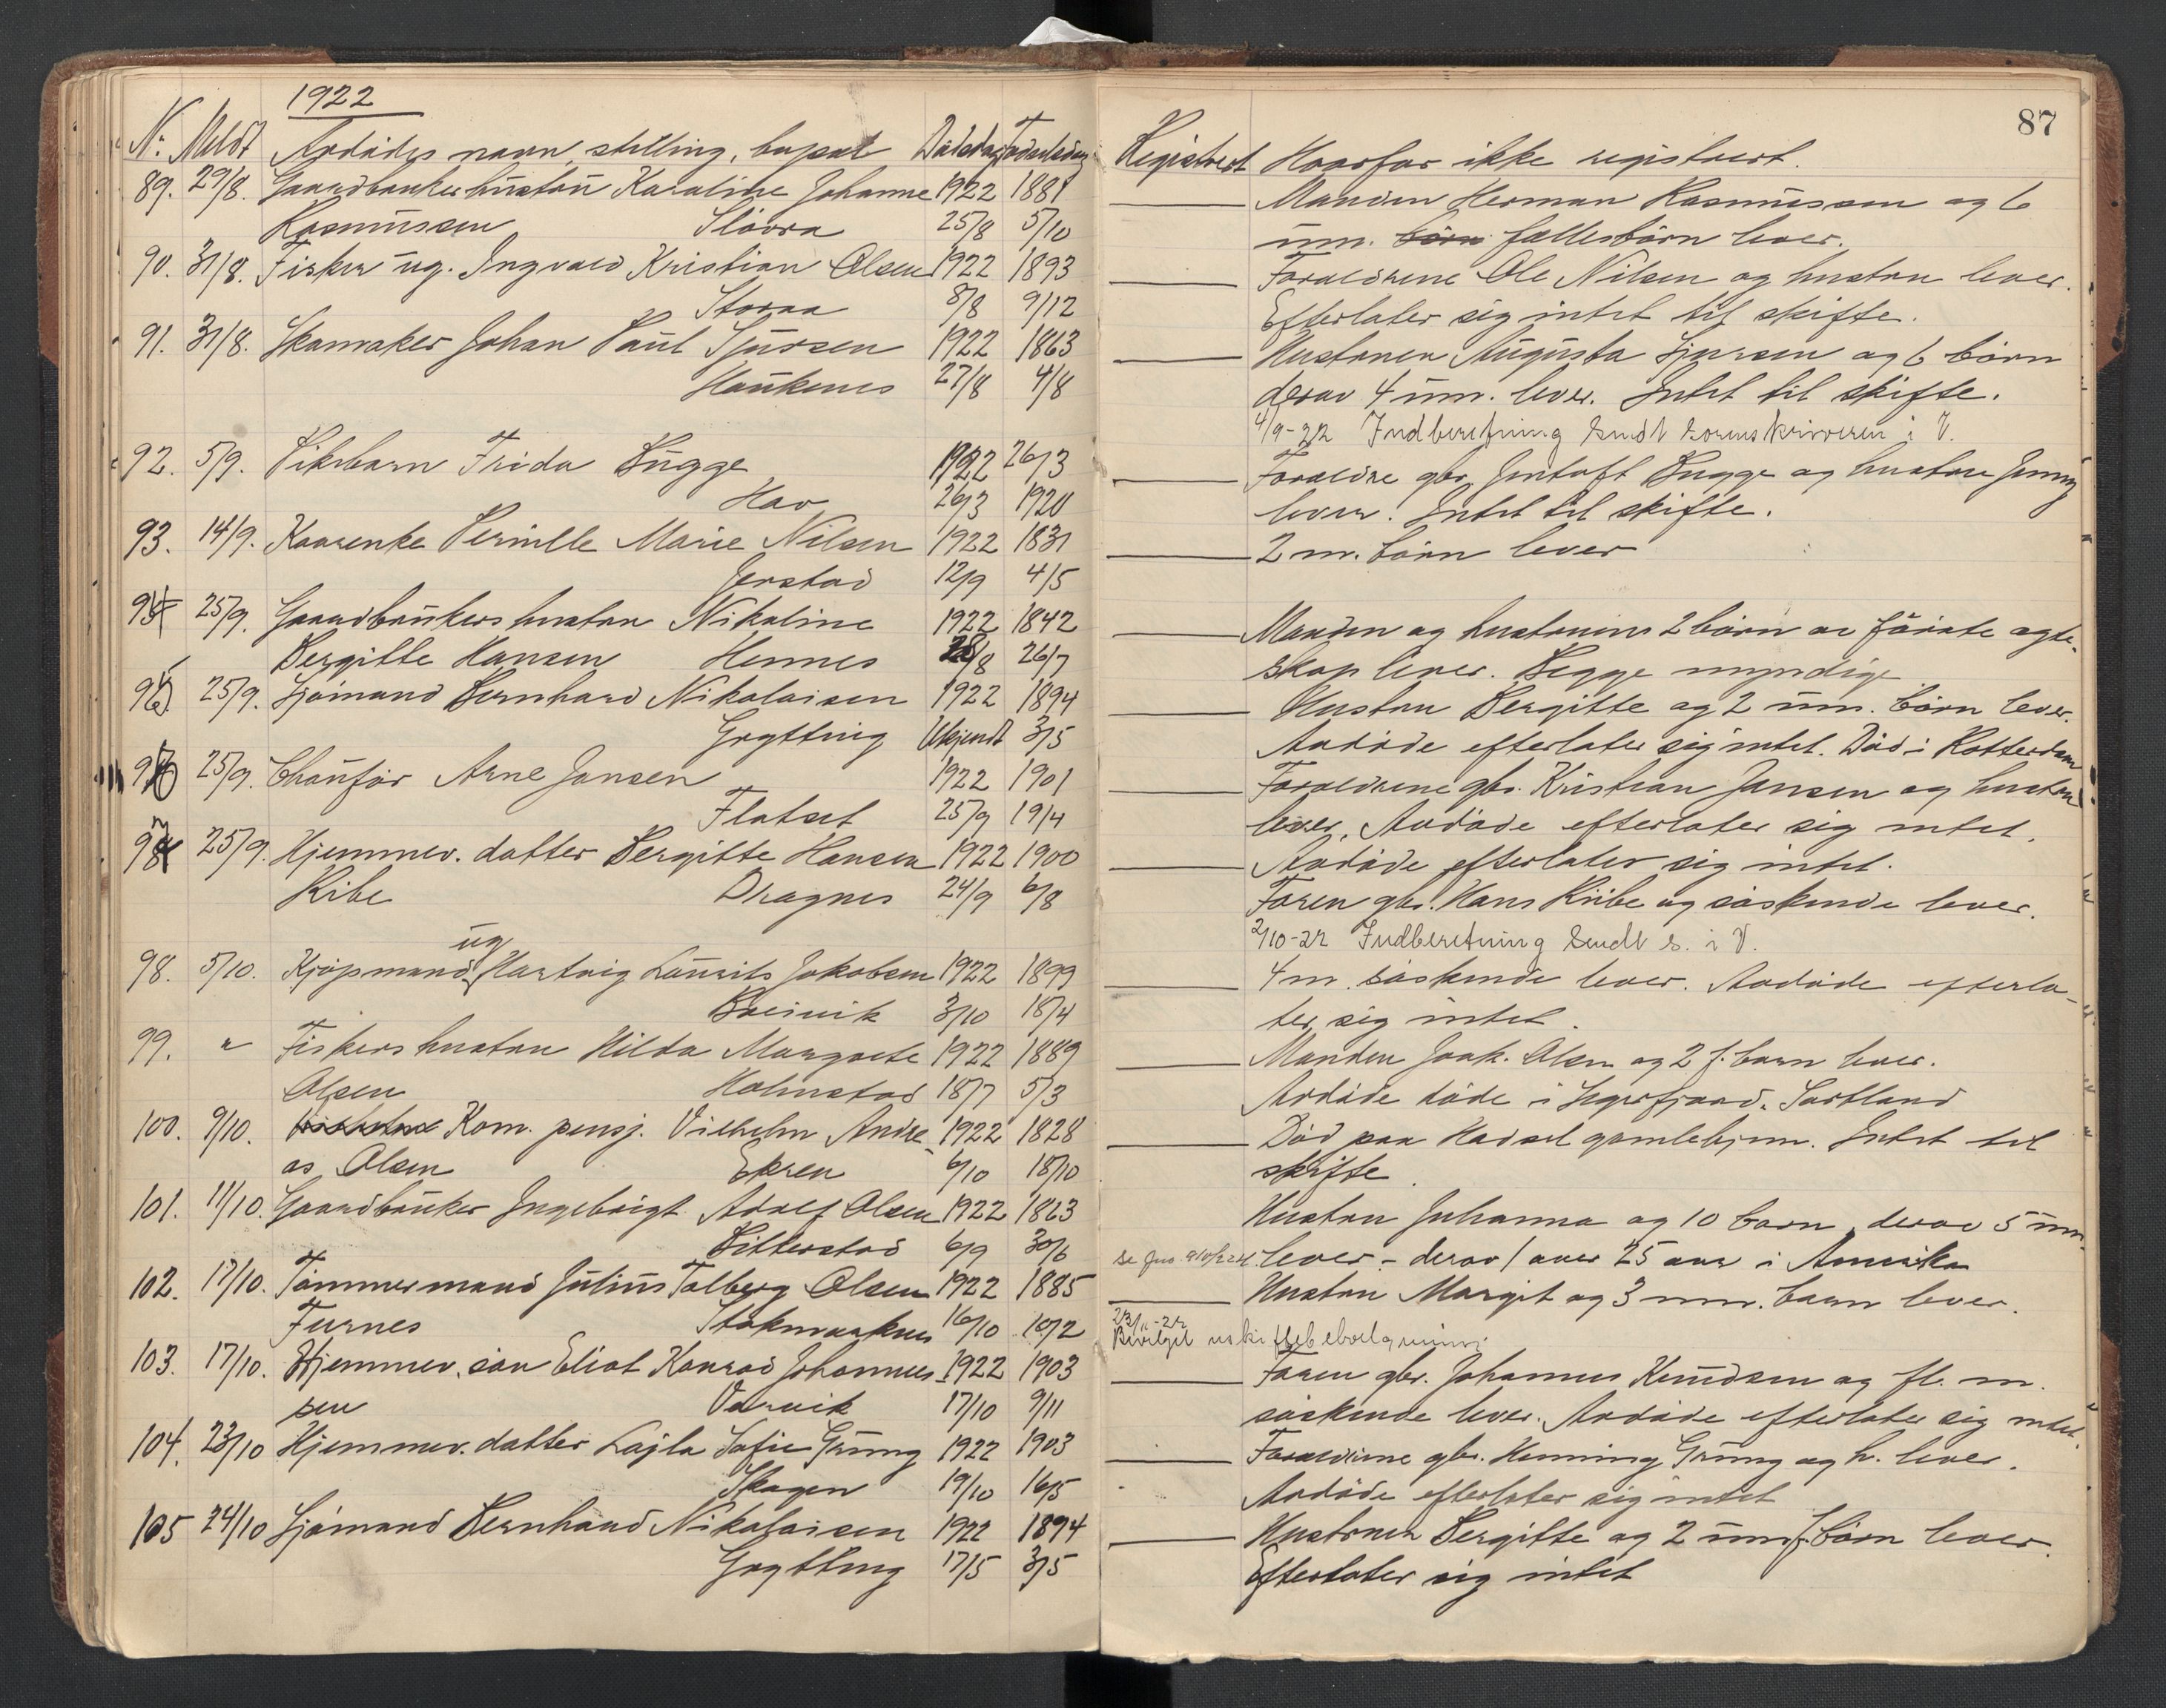 1922
Nr. Meldt Avdødes navn, stilling, bopæl Dødsdag Fødselsdag
89. 29/8. Gaardbrukerhustru Karoline Johanne 1922 1881
Rasmussen 25/8 5/10
90. 31/8. Fisker ug. Ingvald Kristian Olsen 1922 1893
Storaa 8/8 9/12
91. 31/8. Skomaker Johan Paul Sjursen 1922 1863
Haukenes 27/8 4/8
92. 5/9. Pikebarn Frida Bugge 1922 26/3
Hav 26/3 1920
93. 14/9. Kaarenke Pernille Marie Nilsen 1922 1831
Jerstad 12/9 4/5
94 25/9. Gaardbrukers hustru Nikoline 1922 1842
Bergitte Hansen Hennes 28/8 26/7
95. 25/9. Sjømand Bernhard Nikolaisen 1922 1894
Grytting Ukjendt 3/5
96 25/9. Chauffør Arne Jansen 1922 1901
Flatset 25/9 19/4
97 25/9. Hjemmev. datter Bergitte Hansen 1922 1900
Kibe Dragnes 24/9 6/8
ug
98. 5/10. Kjøpmand Hartvig Laurits Jakobsen 1922 1899
Breivik 3/10 18/4
99. " Fiskers hustru Hilda Margrete 1922 1889
Olsen Holmstad 18/7 5/3
100. 9/10. Kom. pensj. Vilhelm Andre- 1922 1828
as Olsen Ekren 6/10 18/10
101. 11/10. Gaardbruker Ingebrigt Adolf Olsen 1922 1863
Bitterstad 6/9 30/6
102. 17/10. Tømmermand Julius Talberg Olsen 1922 1885
Furnes Stokmarknes 16/10 10/2
103. 17/10. Hjemmev. søn Eliot Konrad Johannes- 1922 1903
sen Vervik 17/10 9/11
104. 23/10 Hjemmev. datter Lajla Sofie Grung 1922 1903
Skagen 19/10 16/5
105 24/10 Sjømand Bernhard Nikolaisen 1922 1894
Grytting 17/5 3/5
87
Registrert Hvorfor ikke registrert.
Manden Herman Rasmussen og 6
um. børn fællesbørn lever.
Forældrene Ole Nilsen og hustru lever.
Efterlater sig intet til skifte.
Hustruen Augusta Sjursen og 6 børn
derav 4 um. lever. Intet til skifte.
4/9-22 Indberetning sendt sorenskriveren i V.
Forældre gbr. Jentoft Bugge og hustru Jenny
lever. Intet til skifte.
2 m. børn lever
Manden og hustruens 2 børn av første ægte-
skap lever. Begge myndige
Hustru Bergitte og 2 um. børn lever.
Avdøde efterlater sig intet. Død i Rotterdam
Forældrene gbr. Kristian Jansen og hustru
lever. Avdøde efterlater sig intet.
Avdøde efterlater sig intet.
Faren gbr. Hans Kribe og søskende lever.
2/10-22 Indberetning sendt s. i V.
4 m. søskende lever. Avdøde efterla-
ter sig intet.
Manden Joak. Olsen og 2 f. barn lever.
Avdøde døde i Sigerfjord, Sortland
Død paa Hadsel gamlehjem. Intet til
skifte.
Hustru Johanna og 10 barn, derav 5 um.
lever - derav 1 over 25 aar i Amerika
Hustru Margit og 3 um. barn lever.
23/11-22
Bevilget uskiftebevilgning
Faren gbr. Johannes Knudsen og fl. m.
søskende lever. Avdøde efterlater sig intet.
Forældrene gbr. Henning Grung og h. lever.
Avdøde efterlater sig intet
Hustruen Bergitte og 2 um. f. børn lever.
Efterlater sig intet